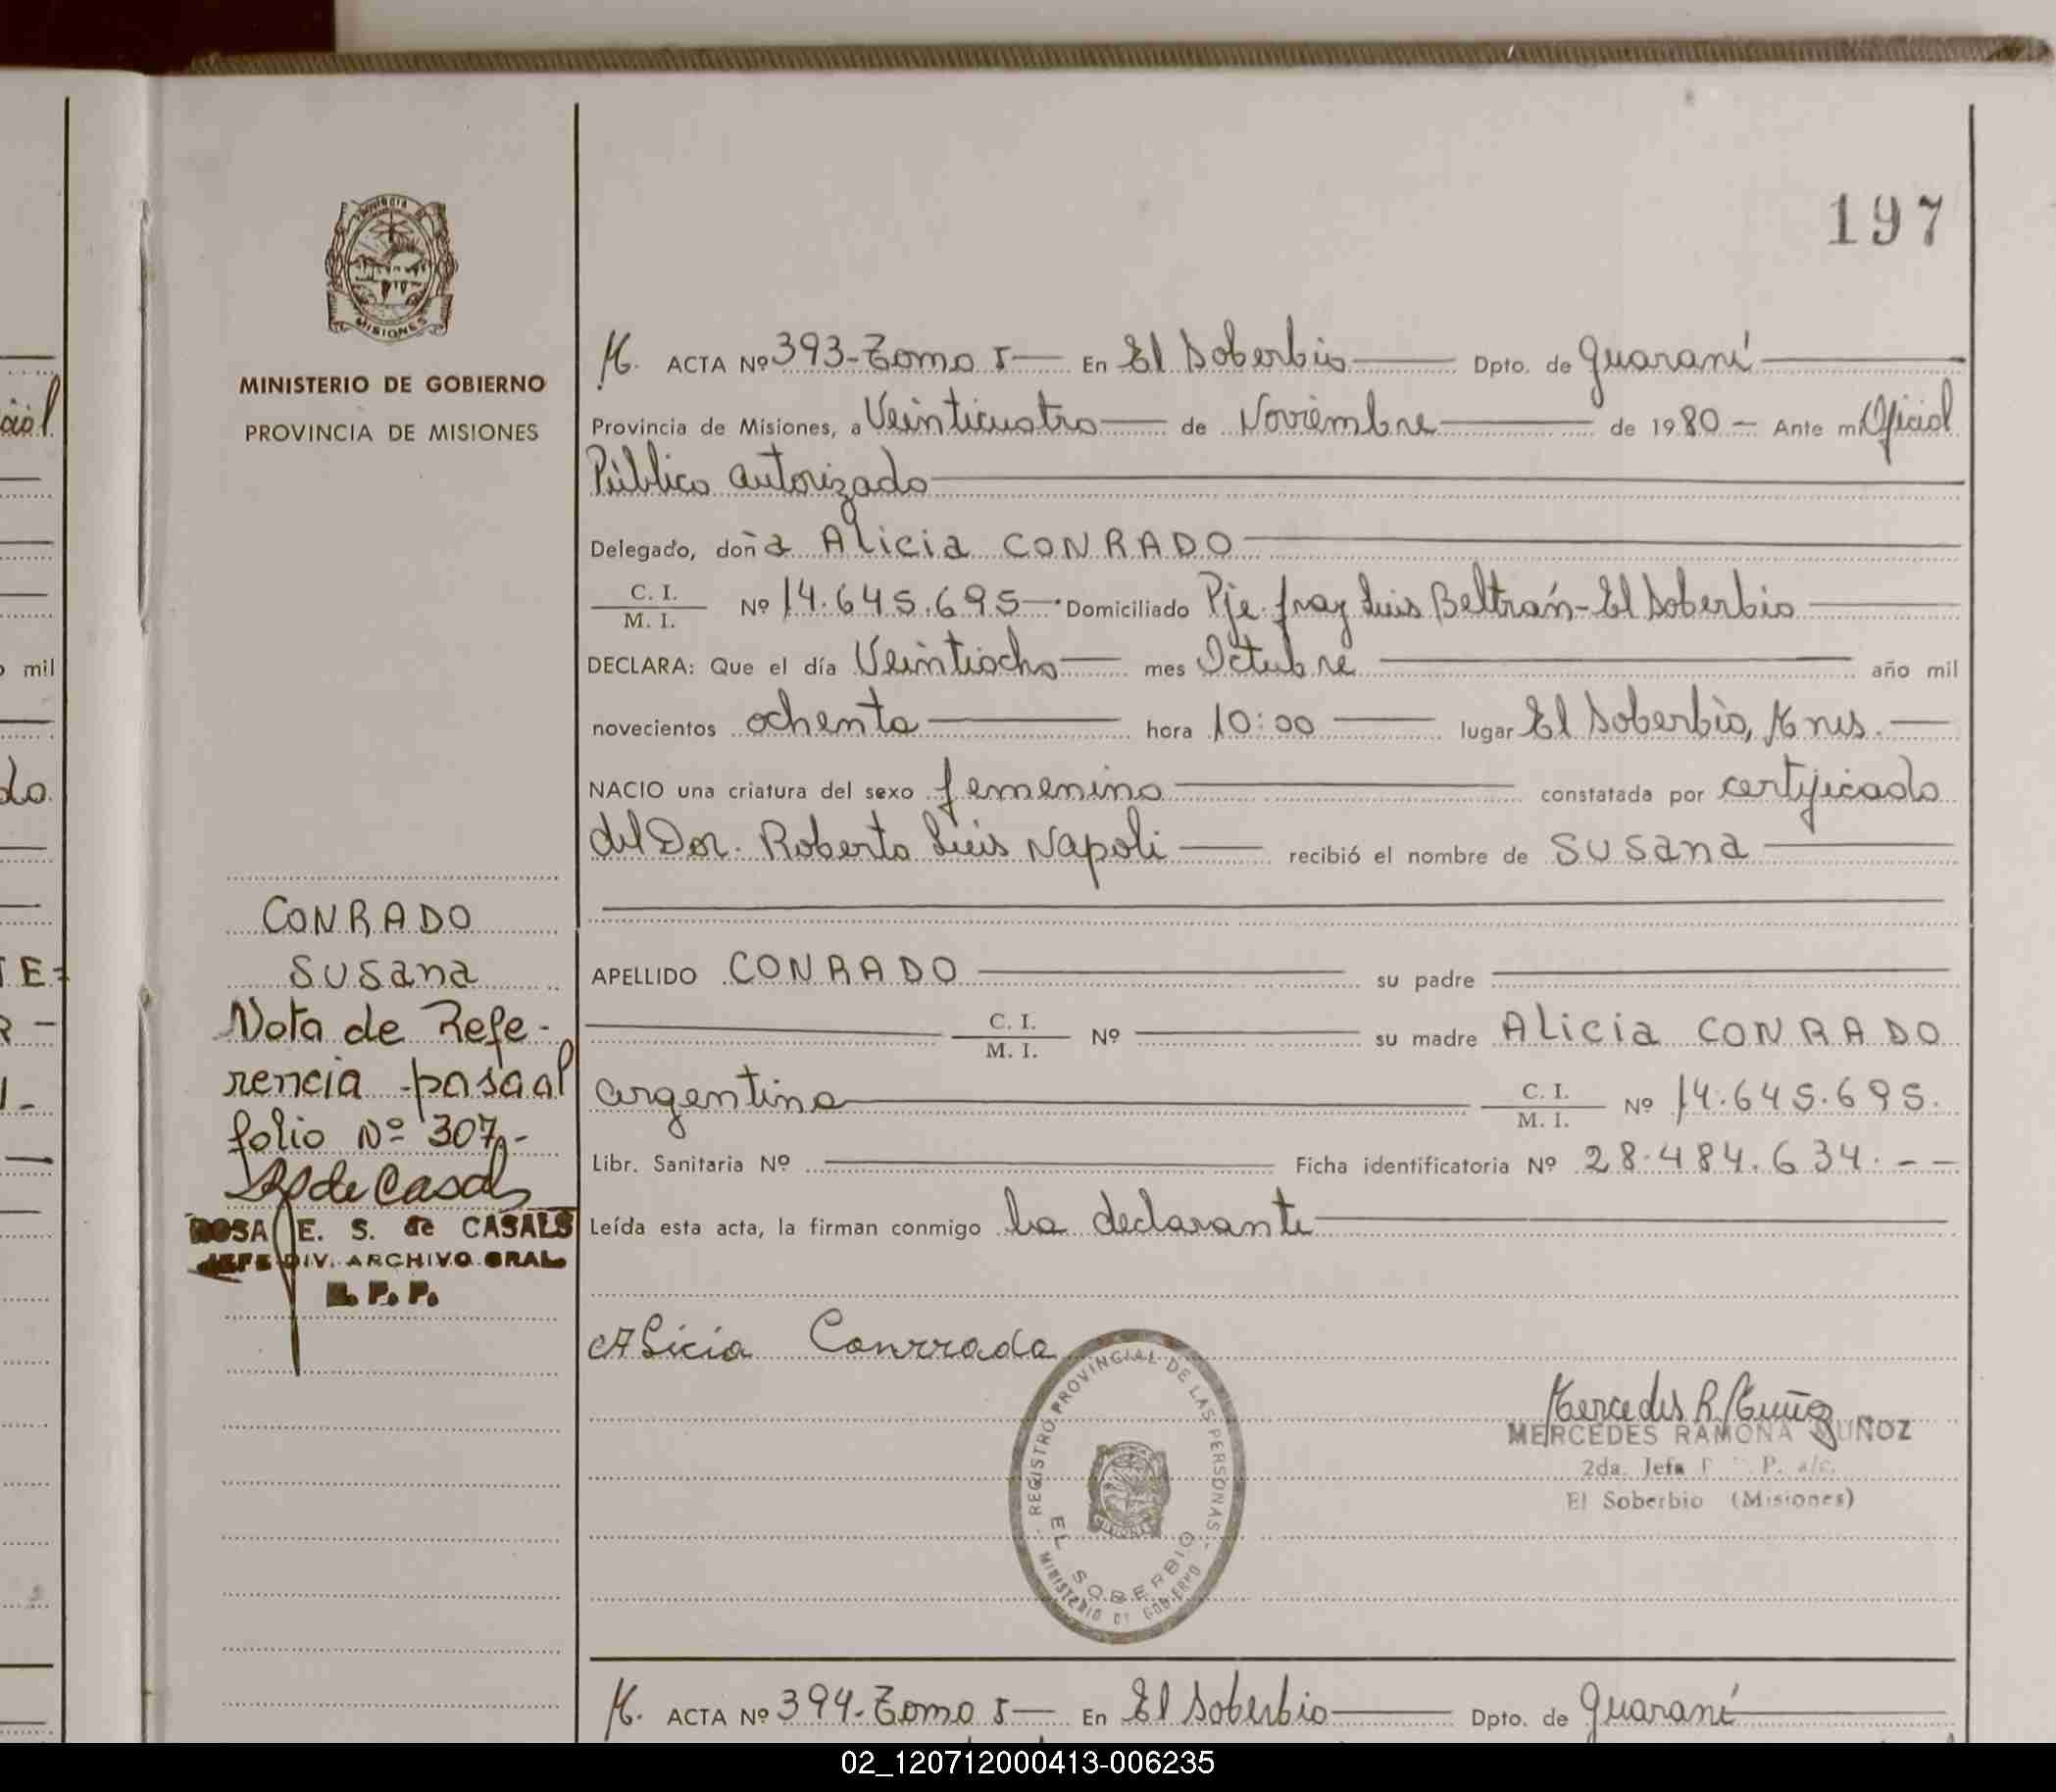 197
PROVINCIA DE
MISIONES
MINISTERIO DE GOBIERNO
PROVINCIA DE MISIONES
M. ACTA Nº 393-Tomo 5 En El Soberbio Dpto. de Guaraní
Provincia de Misiones, a Veinticuatro de Noviembre de 1980 Ante mi Oficial
Público autorizado
Delegado, doña Alicia CONRADO
C. I.
M. I. Nº 14.645.695 Domiciliado Pje. fray Luis Beltrán-El Soberbio
DECLARA: Que el día Veintiocho mes Octubre año mil
novecientos ochenta hora 10:00 lugar El Soberbio, Mnes.
NACIO una criatura del sexo femenino constatada por certificado
del Dor. Roberto Luis Napoli recibió el nombre de Susana
APELLIDO CONRADO su padre
C. I.
M. I. Nº su madre Alicia CONRADO
argentina C. I.
M. I. Nº 14.645.695.
Libr. Sanitaria Nº Ficha identificatoria Nº 28.484.634.--
Leída esta acta, la firman conmigo la declarante
Alicia Conrrado
CONRADO
Susana
Nota de Refe-
rencia pasa al
folio Nº 307.-
ROSA E. S. de CASALS
JEFE DIV. ARCHIVO GRAL.
R. P. P.
REGISTRO PROVINCIAL DE LAS PERSONAS
EL SOBERBIO
MINISTERIO DE GOBIERNO
Mercedes R. Muñoz
MERCEDES RAMONA MUÑOZ
2da. Jefa P. a/c.
El Soberbio (Misiones)
M. ACTA Nº 394-Tomo 5 En El Soberbio Dpto. de Guaraní
mil
02_120712000413-006235